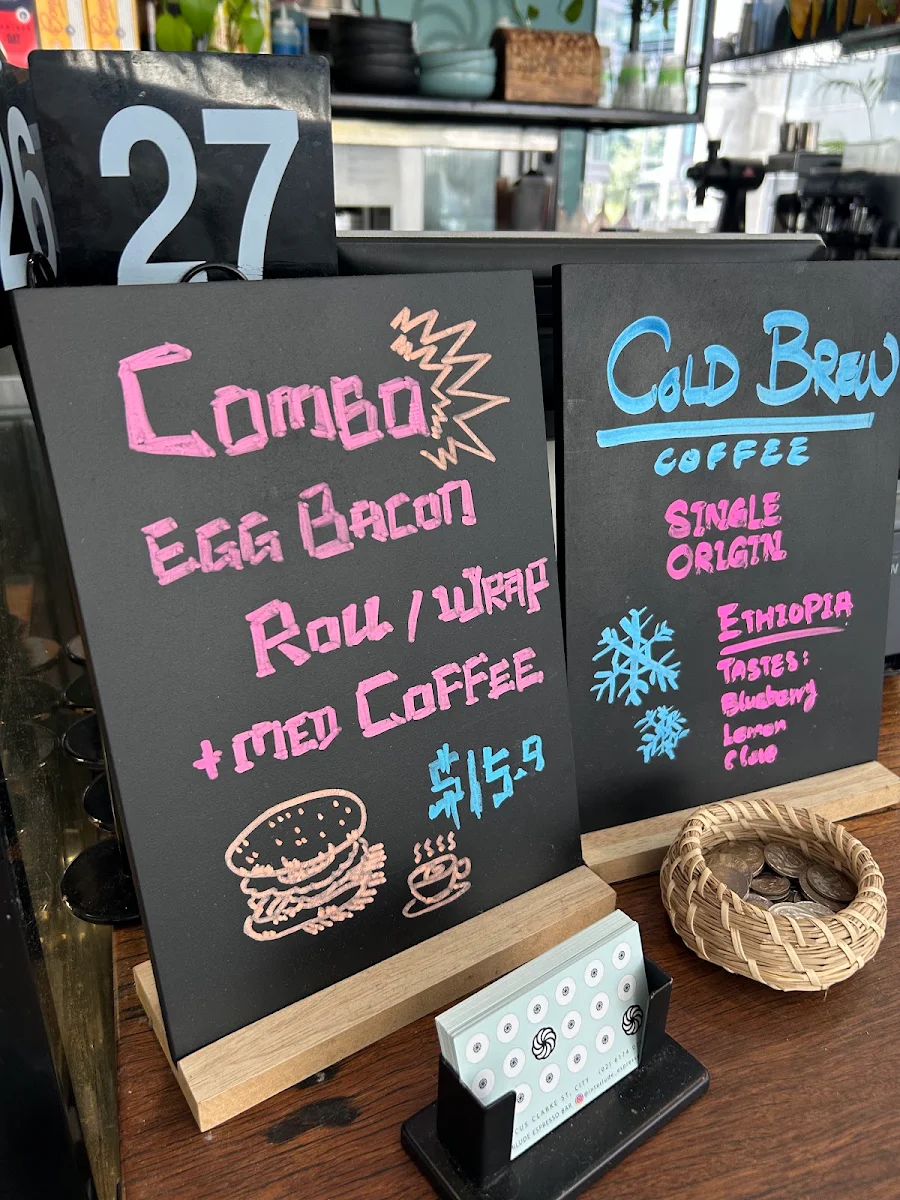 26
27
Combo
EGG BACON
ROLL / WRAP
+ MED COFFEE
$15.9
COLD BREW
COFFEE
SINGLE
ORIGIN
ETHIOPIA
TASTES:
Blueberry
Lemon
Clove
CUS CLARKE ST, CITY (02) 6174
LUDE ESPRESSO BAR @interlude_espresso